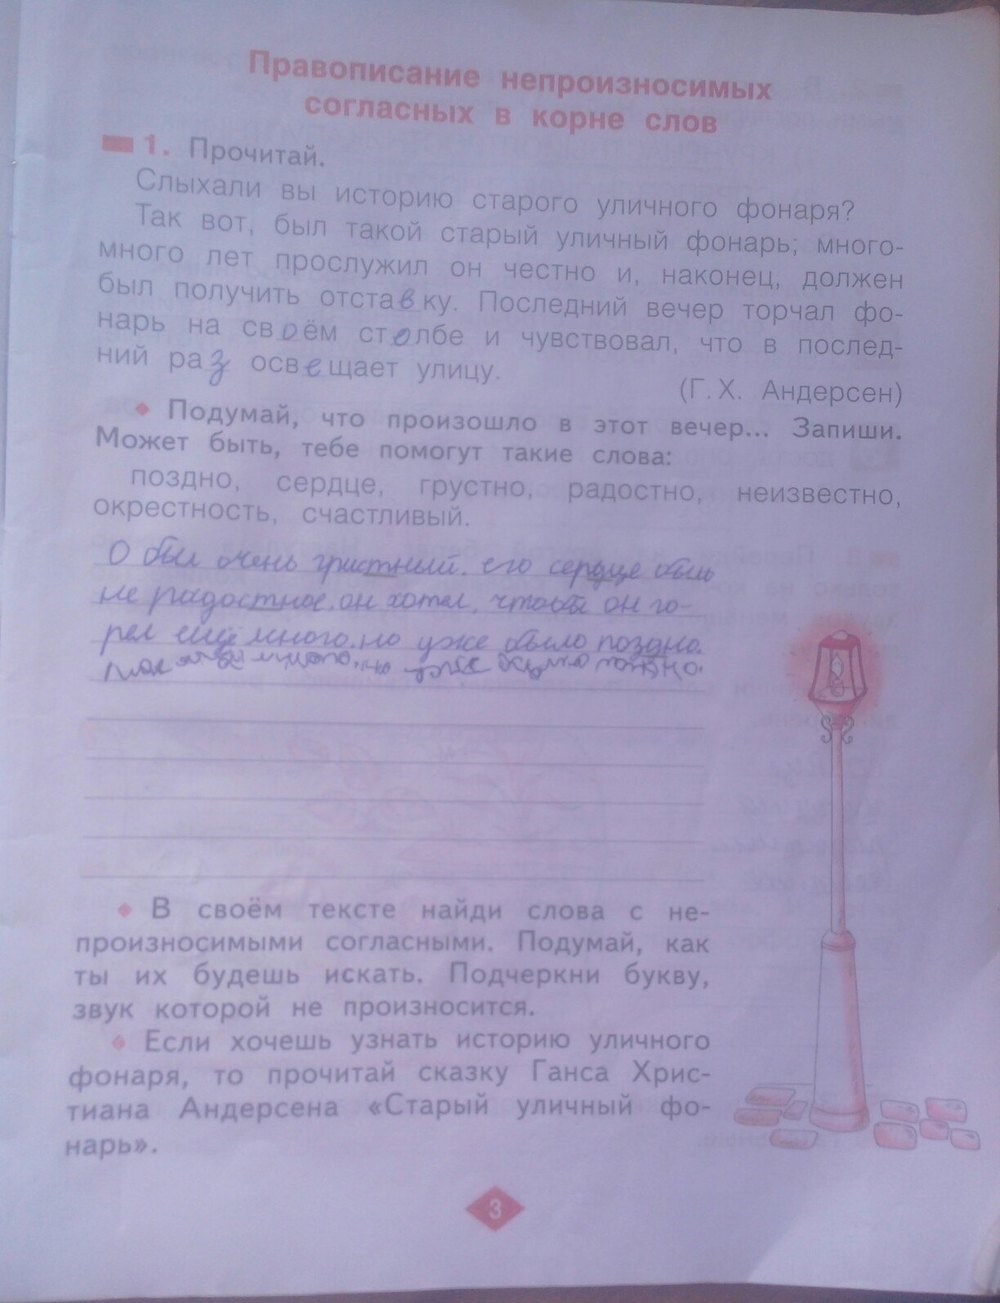 Правописание непроизносимых
согласных в корне слов
1. Прочитай.
Слыхали вы историю старого уличного фонаря?
Так вот, был такой старый уличный фонарь; много-
много лет прослужил он честно и, наконец, должен
был получить отставку. Последний вечер торчал фо-
нарь на своём столбе и чувствовал, что в послед-
ний раз освещает улицу.
(Г. Х. Андерсен)
Подумай, что произошло в этот вечер... Запиши.
Может быть, тебе помогут такие слова:
поздно, сердце, грустно, радостно, неизвестно,
окрестность, счастливый.
О был очень грустный. его сердце было
не радостное. он хотел, чтобы он го-
рел ещё много. но уже было поздно.
уже поздно.
В своём тексте найди слова с не-
произносимыми согласными. Подумай, как
ты их будешь искать. Подчеркни букву,
звук которой не произносится.
Если хочешь узнать историю уличного
фонаря, то прочитай сказку Ганса Хрис-
тиана Андерсена «Старый уличный фо-
нарь».
3